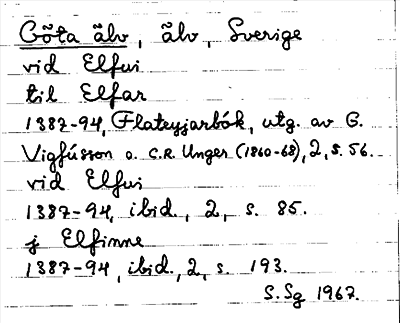 Göta älv, älv, Sverige
vid Elfui
til Elfar
1387-94, Flateyjarbók, utg. av G.
Vigfússon o. C.R. Unger (1860-68), 2, s. 56.
vid Elfui
1387-94, ibid., 2, s. 85.
j Elfinne
1387-94, ibid., 2, s. 193.
S.Sg 1967.